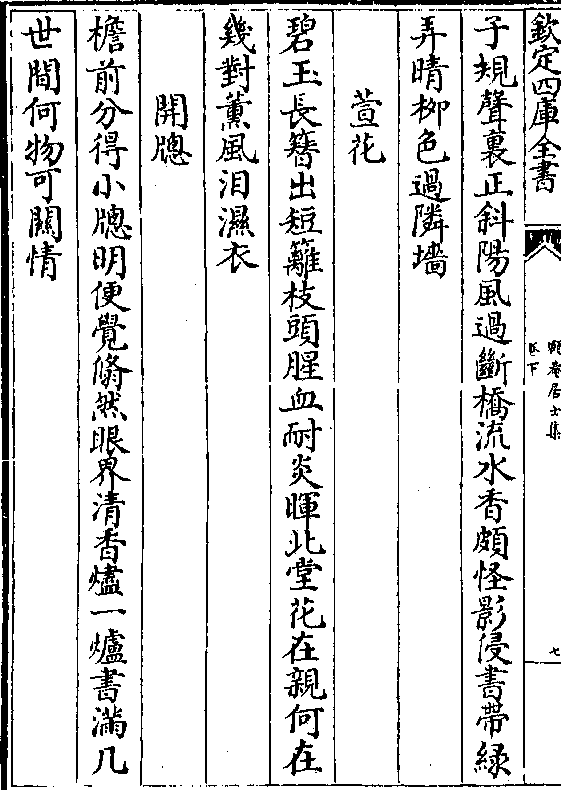 欽定四庫全書
頥菴居士集
卷下
七
子規聲裏正斜陽風過斷橋流水香頗怪影侵書帶綠
弄晴柳色過隣墻
萱花
碧玉長簪出短籬枝頭腥血耐炎暉北堂花在親何在
幾對薰風泪濕衣
開牕
檐前分得小牕明便覺翛然眼界清香燼一爐書滿几
世間何物可關情